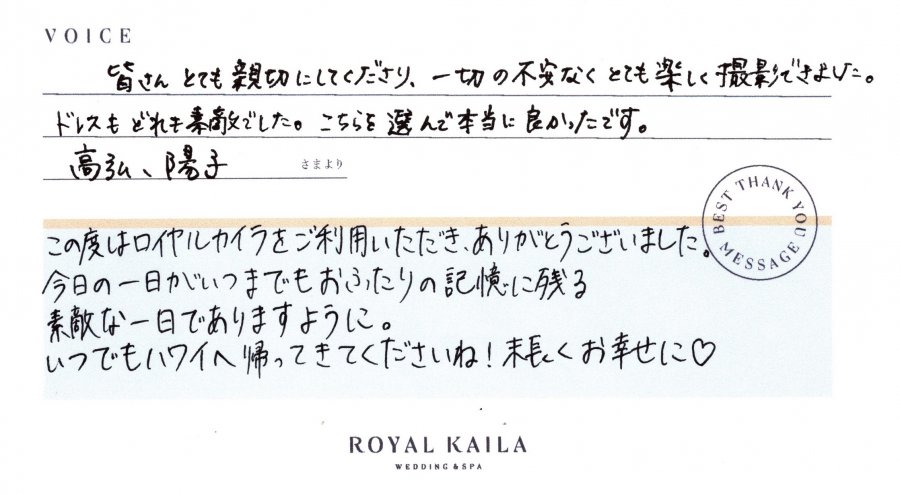 VOICE
皆さんとても親切にしてくださり、一切の不安なくとても楽しく撮影できました。
ドレスもどれも素敵でした。こちらを選んで本当に良かったです。
高弘、陽子 さまより
BEST THANK YOU MESSAGE
この度はロイヤルカイラをご利用いただき、ありがとうございました。
今日の一日がいつまでもおふたりの記憶に残る
素敵な一日でありますように。
いつでもハワイへ帰ってきてくださいね！末長くお幸せに♡
ROYAL KAILA
WEDDING & SPA